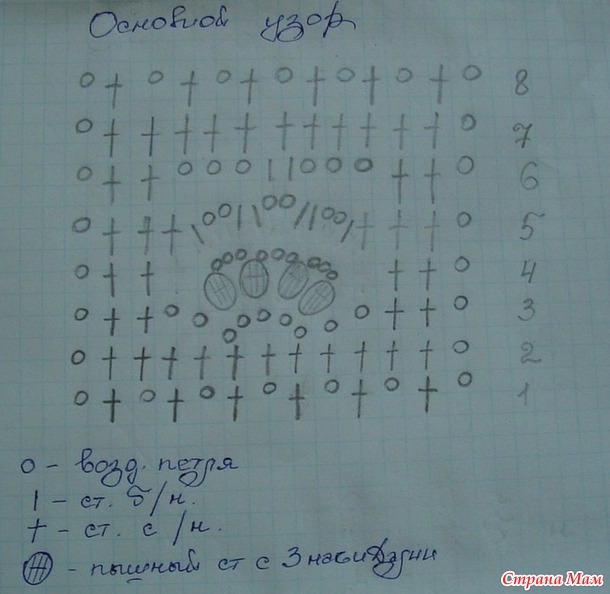 Основной узор
8
7
6
5
4
3
2
1
o - возд. петля
| - ст. б/н.
† - ст. с/н.
- пышный ст с 3 накидами
Страна Мам